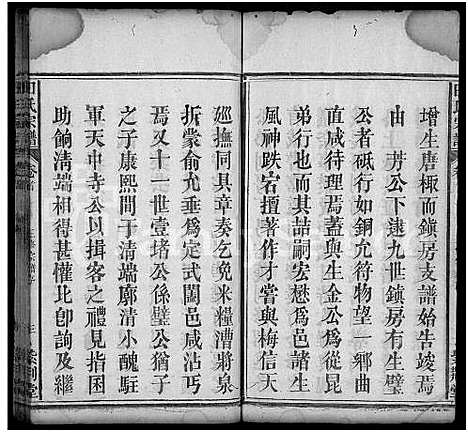 增生唐棷而鎮房支譜始告竣焉
由　芳公下逮九世鎮房有生璧
公者砥行如銅允符物望一鄉曲
直咸待理焉蓋與生金公其從昆
弟行也而其喆嗣宏懋俶儻有父
風神跌宕擅著作才嘗與兩
廵撫同具章奏乞免米糧漕將泉
折蒙俞允垂爲定式闔邑咸沾丐
焉又十一世壹堵公係璧公猶子
之子康熙間于清端廓清小醜駐
軍天中寺公以揖客之禮見指畫
助餉清端相得甚懽比卽詢及繼
田氏宗譜
紫荆堂